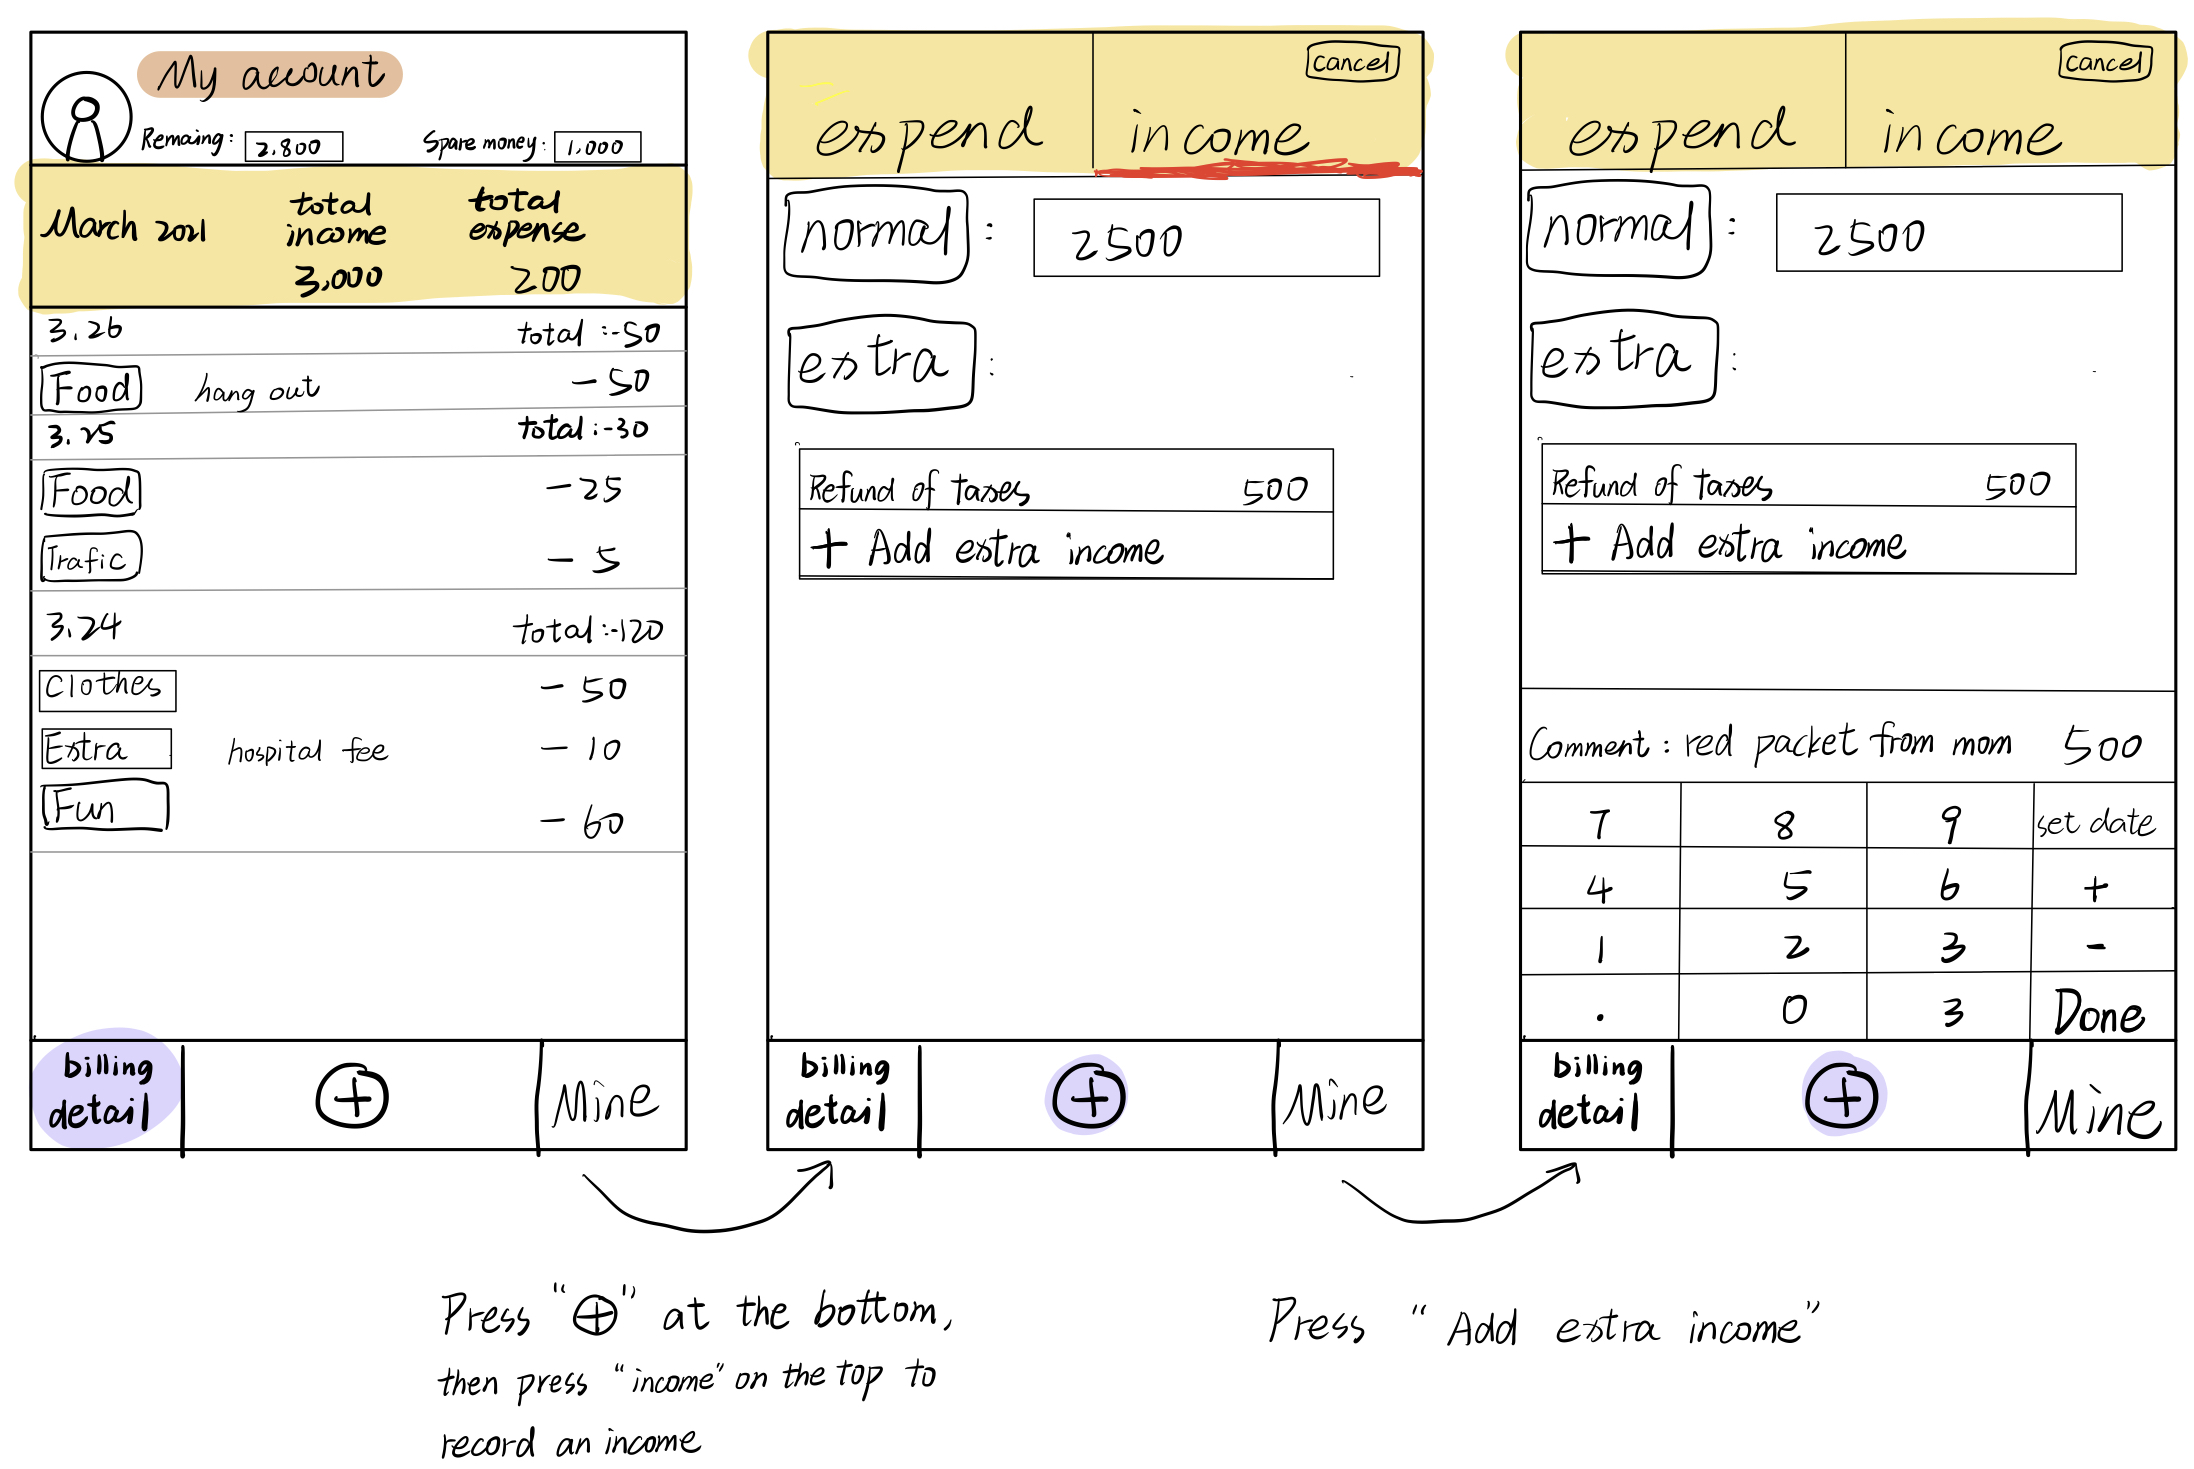 My account
Remaing: 2.800 Spare money: 1,000
March 2021
total income 3,000
total expense 200
3.26 total :-50
Food hang out - 50
3.25 total :-30
Food - 25
Trafic - 5
3.24 total :-120
Clothes - 50
Extra hospital fee - 10
Fun - 60
billing detail + Mine
cancel
expend income
normal : 2500
extra :
Refund of taxes 500
+ Add extra income
billing detail + Mine
cancel
expend income
normal : 2500
extra :
Refund of taxes 500
+ Add extra income
Comment : red packet from mom 500
7 8 9 set date
4 5 6 +
1 2 3 -
. 0 3 Done
billing detail + Mine
Press "⊕" at the bottom,
then press "income" on the top to
record an income
Press "Add extra income"